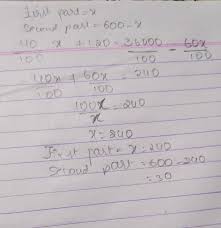 First part = x
Second part = 600 - x
40/100 x + 120 = 36000/100 - 60x/100
40x/100 + 60x/100 = 240
100x/x = 240
x = 240
First part = x = 240
Second part = 600 - 240
= 30